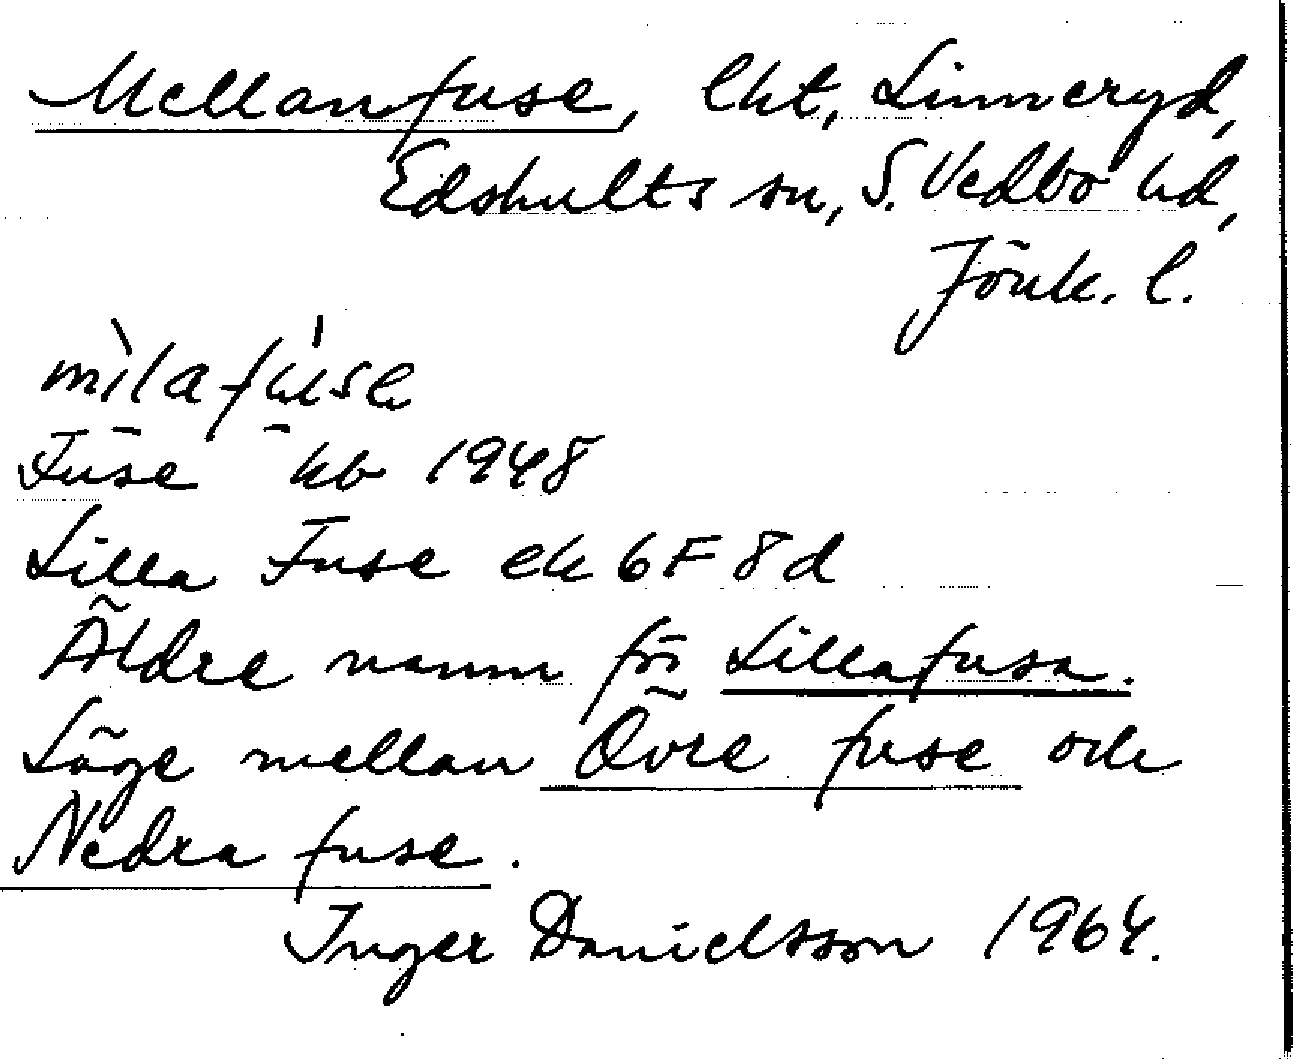 Mellanfuse, lht, Linneryd,
Edshults sn, S. Vedbo hd,
Jönk. l.
mìlafú̄se
Fuse kb 1948
Lilla Fuse ek 6F 8d
Äldre namn för Lillafusa.
Läge mellan Övre fuse och
Nedra fuse.
Inger Danielsson 1964.